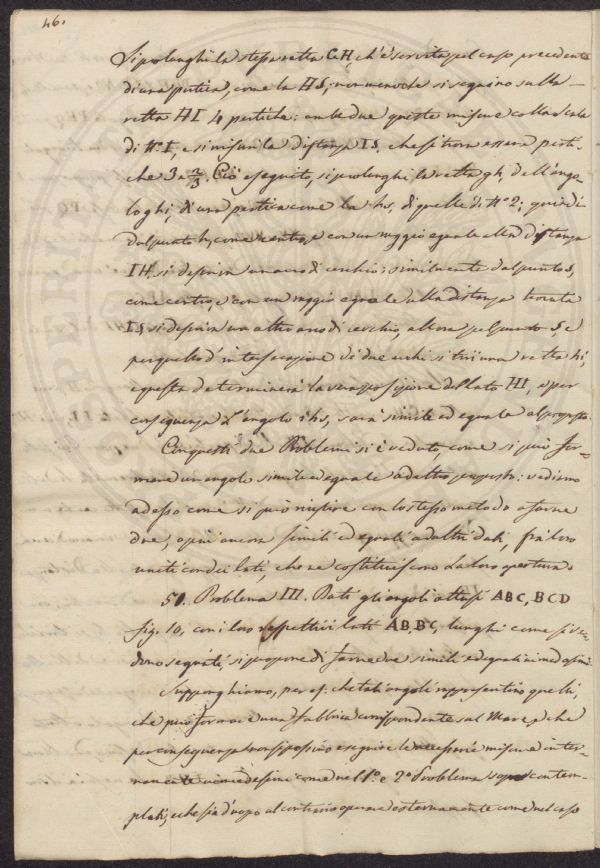 46.
Si prolunghi la stessa retta GH, ch'è servita pel caso precedente
di una pertica, come la HS; non meno che si segnino sulla
retta HI 4 pertiche: ambedue queste misure colla scala
di N.º I, e si misuri la distanza IS, che si trova essere perti-
che 3 e 2/3. Ciò eseguito, si prolunghi la retta gh, dell'ango-
lo ghi, di una pertica come la hs, di quelle di Nº 2; quindi
dal punto h, come centro, e con un raggio eguale alla distanza
IH, si descriva un arco di cerchio: similmente dal punto s,
come centro, e con un raggio eguale alla distanza trovata
IS, si descriva un altro arco di cerchio, allora pel punto h, e
per quello d'intersecazione di due archi si tiri una retta hi,
e questa determinerà la vera posizione del lato HI, e per
conseguenza l'angolo ihs, sarà simile ed eguale al proposto.
Con questi due Problemi si è veduto, come si può for-
mare un angolo simile ed eguale ad altro proposto: vediamo
adesso come si può riuscire con lo stesso metodo a farne
due, o più ancora simili ed eguali ad altri dati, fra loro
uniti con dei lati, che ne costituiscono la loro apertura.
50. Problema III. Dati gli angoli ottusi ABC, BCD
fig. 10, con i loro rispettivi lati AB, BC, lunghi come si ve-
dono segnati, si propone di farne due simili ed eguali ai medesimi.
Supponghiamo, per es: che tali angoli rappresentino quelli,
che può formare una fabbrica corrispondente sul Mare, e che
per conseguenza non si possino eseguire le necessarie misure inter-
namente ai medesimi come nel 1º e 2º Problema sopra contem-
plati, e che sia d'uopo al contrario operare esternamente come nel caso